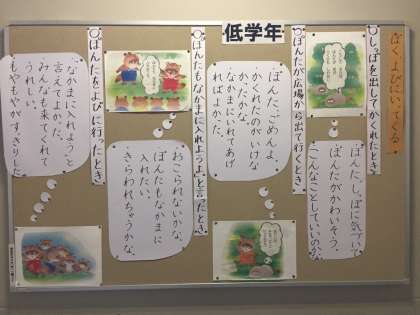 ぼく、よびにいってくる
低学年
○しっぽを出してかくれたとき
ぽんた、しっぽに気づいて。
ぽんたがかわいそう。
こんなことしていいのかな。
○ぽんたが広場から出て行くとき
ぽんた、ごめんよ。
かくれたのが いけな
かったかな。
なかまにいれてあげ
ればよかた。
○「ぽんたもなかまに入れようよ。」と言ったとき
おこられないかな。
ぽんたもなかまに
入れたい。
きらわれちゃうかな。
○ぽんたをよびに行ったとき
「なかまに入れよう」と
言えてよかった。
みんなも来てくれて
うれしい。
もやもやがすっきりした